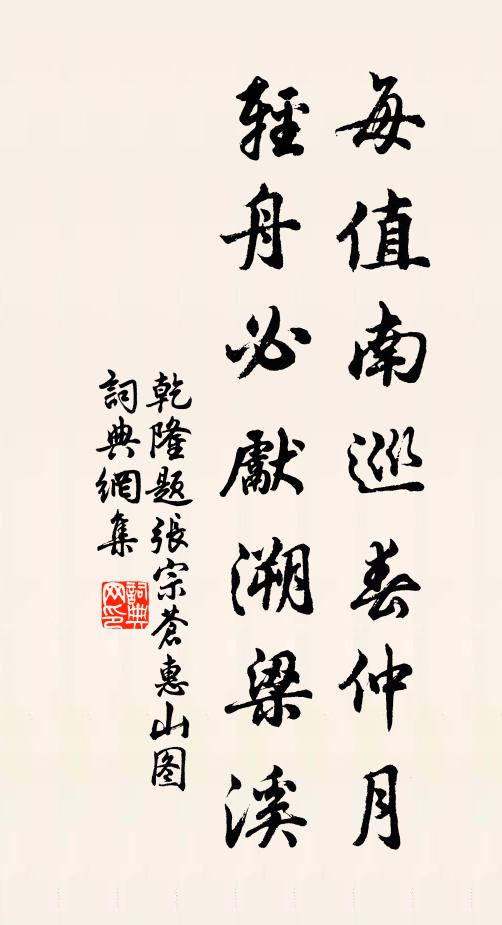 每值南巡春仲月
輕舟必獻溯梁溪
乾隆題張宗蒼惠山图
詞典網集
詞典网印